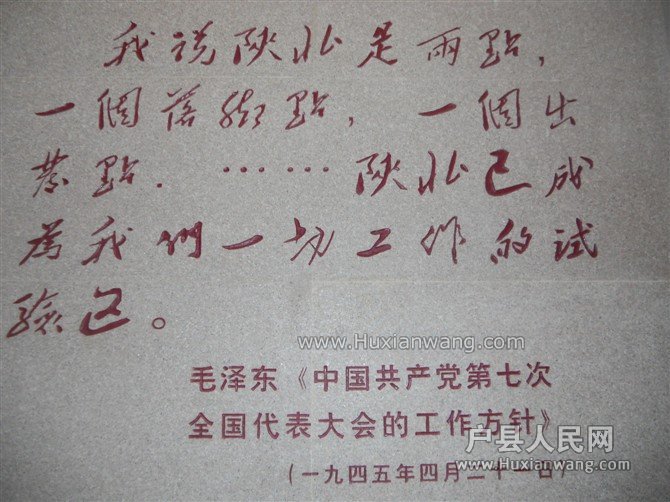 我说陕北是兩點，
一個落脚點，一個出
發點．……陕北已成
為我們一切工作的试
驗区。
www.Huxianwang.com
毛泽东《中国共产党第七次
全国代表大会的工作方针》
户县人民网
www.Huxianwang.com
（一九四五年四月二十一日）